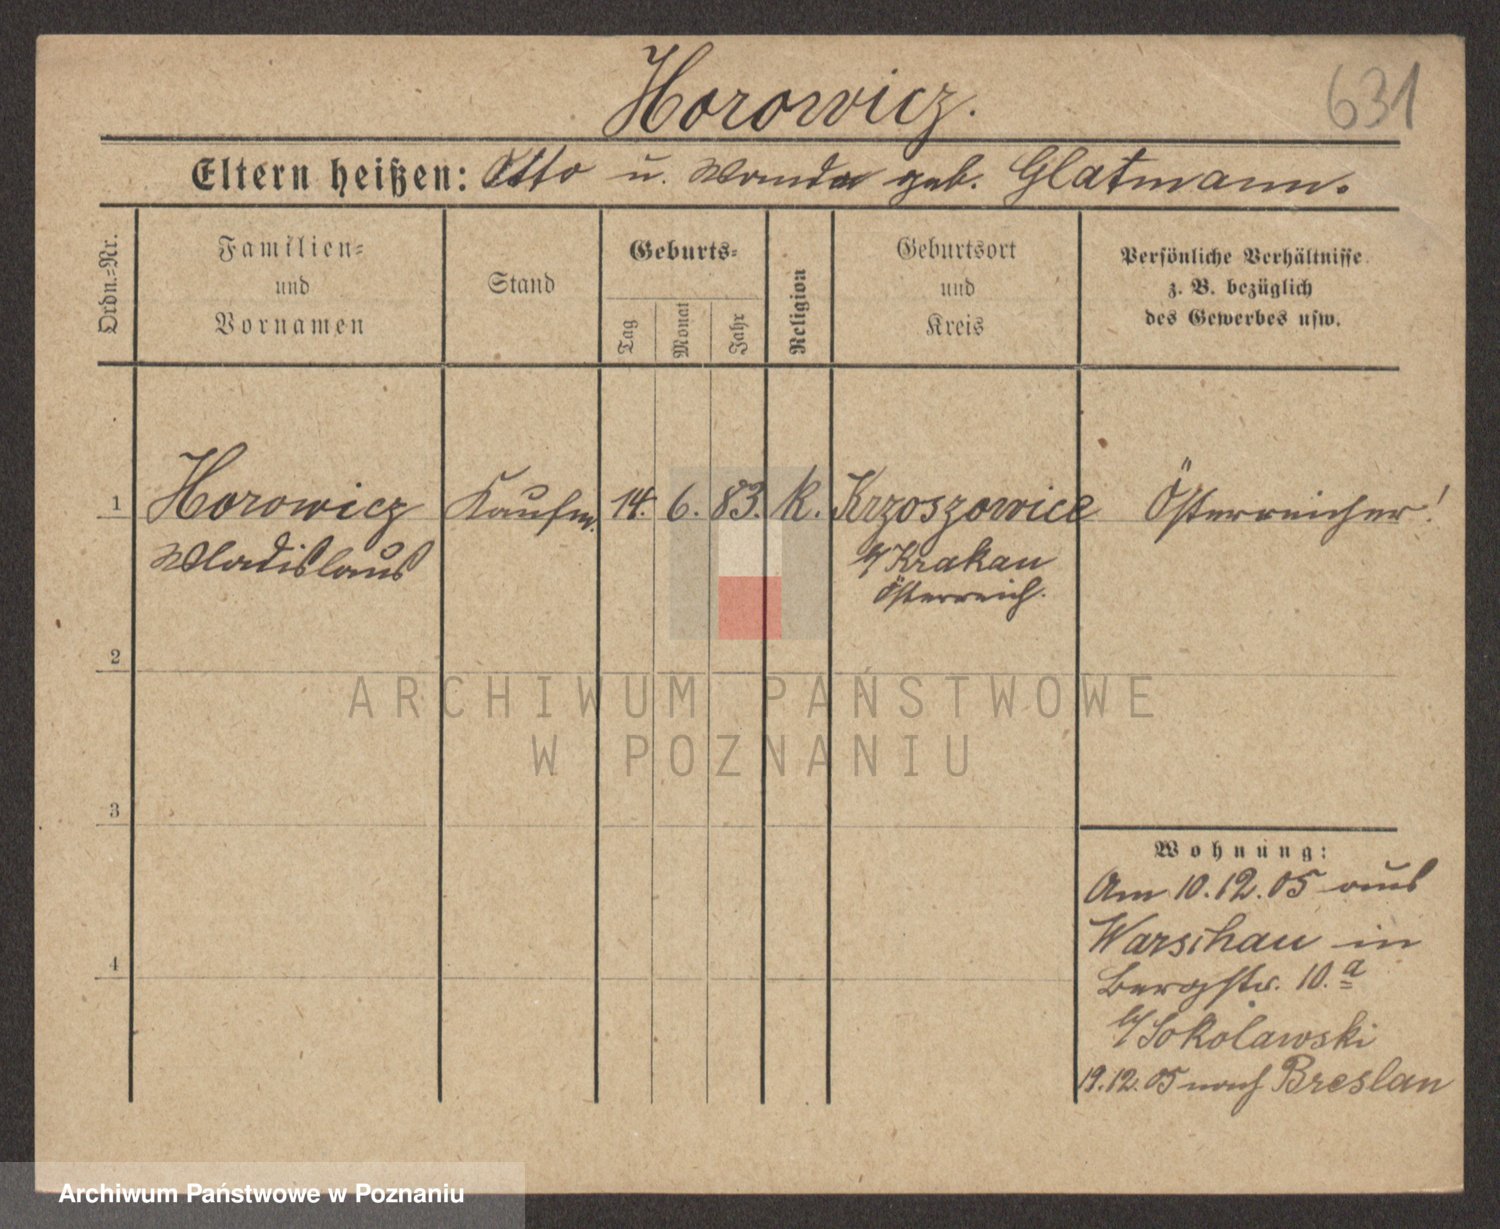 Horowicz.
631
Eltern heißen: Otto u. Wanda geb. Glatmann.
Ordn.=Nr.
Familien=
und
Vornamen
Stand
Geburts=
Tag
Monat
Jahr
Religion
Geburtsort
und
Kreis
Persönliche Verhältnisse
z. B. bezüglich
des Gewerbes usw.
1 Horowicz Kaufm. 14. 6. 83. k. Krzoszowice Österreicher!
Wladislaus b/ Krakau
Österreich.
2
ARCHIWUM PAŃSTWOWE
W POZNANIU
3
Wohnung:
Am 10.12.05 aus
Warschau in
4
Bergstr. 10.a
b/ Sokolawski
19.12.05 nach Breslau
Archiwum Państwowe w Poznaniu